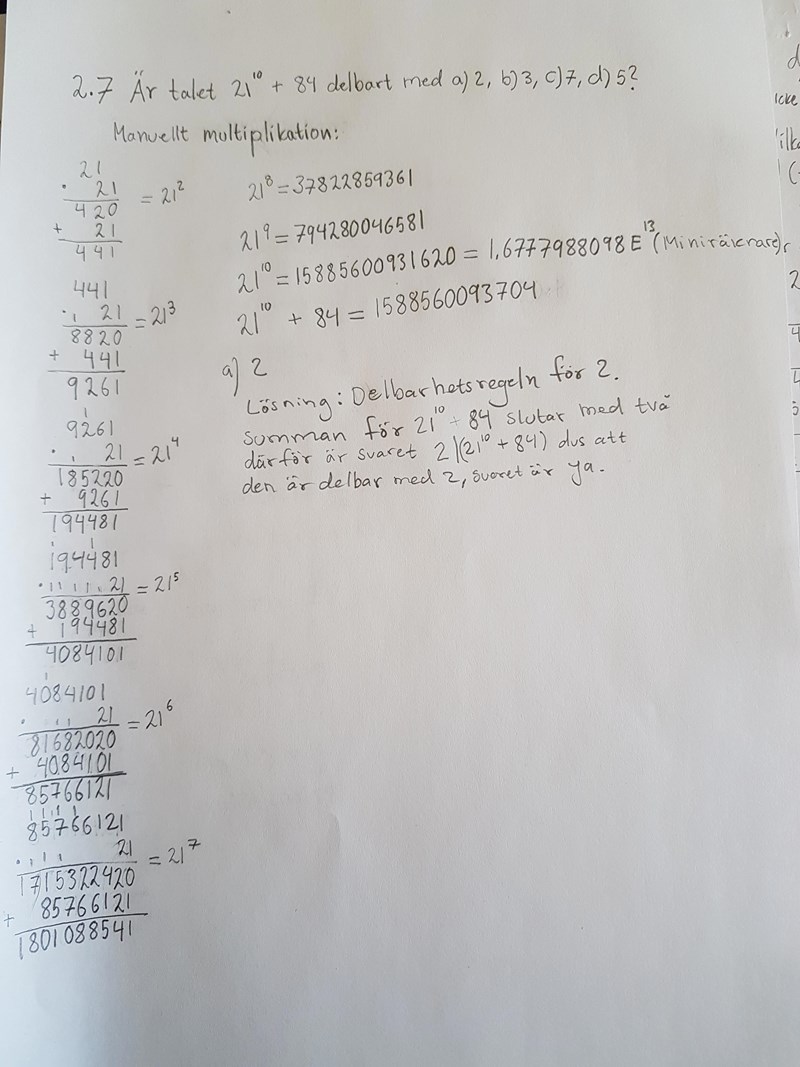 2.7 Är talet 21¹⁰ + 84 delbart med a) 2, b) 3, c) 7, d) 5?
Manuellt multiplikation:
21
· 21 = 21²
420
+ 21
441
441
· 21 = 21³
8820
+ 441
9261
9261
· 21 = 21⁴
185220
+ 9261
194481
194481
· 21 = 21⁵
3889620
+ 194481
4084101
4084101
· 21 = 21⁶
81682020
+ 4084101
85766121
85766121
· 21 = 21⁷
1715322420
+ 85766121
1801088541
21⁸ = 37822859361
21⁹ = 794280046581
21¹⁰ = 15885600931620 = 1,6777988098 E¹³ (Miniräknare)
21¹⁰ + 84 = 1588560093704
a) 2
Lösning: Delbarhetsregeln för 2.
Summan för 21¹⁰ + 84 slutar med två
därför är svaret 2|(21¹⁰ + 84) dvs att
den är delbar med 2, svaret är ya.
d
icke